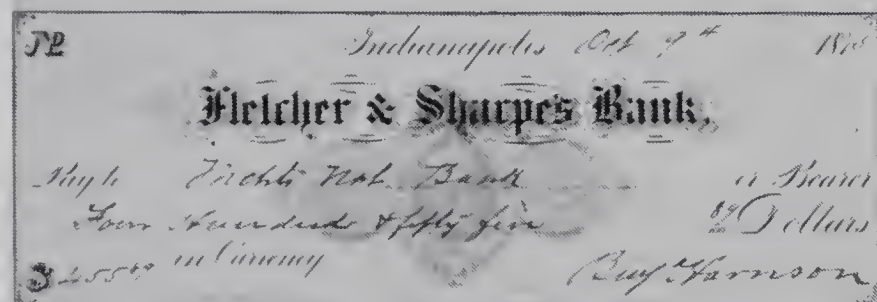 Indianapolis Oct 7th 18
Fletcher & Sharpe's Bank.
Pay to Nat. Bank or Bearer
Four Hundred & fifty five Dollars
$455 in Currency
Benj Harrison